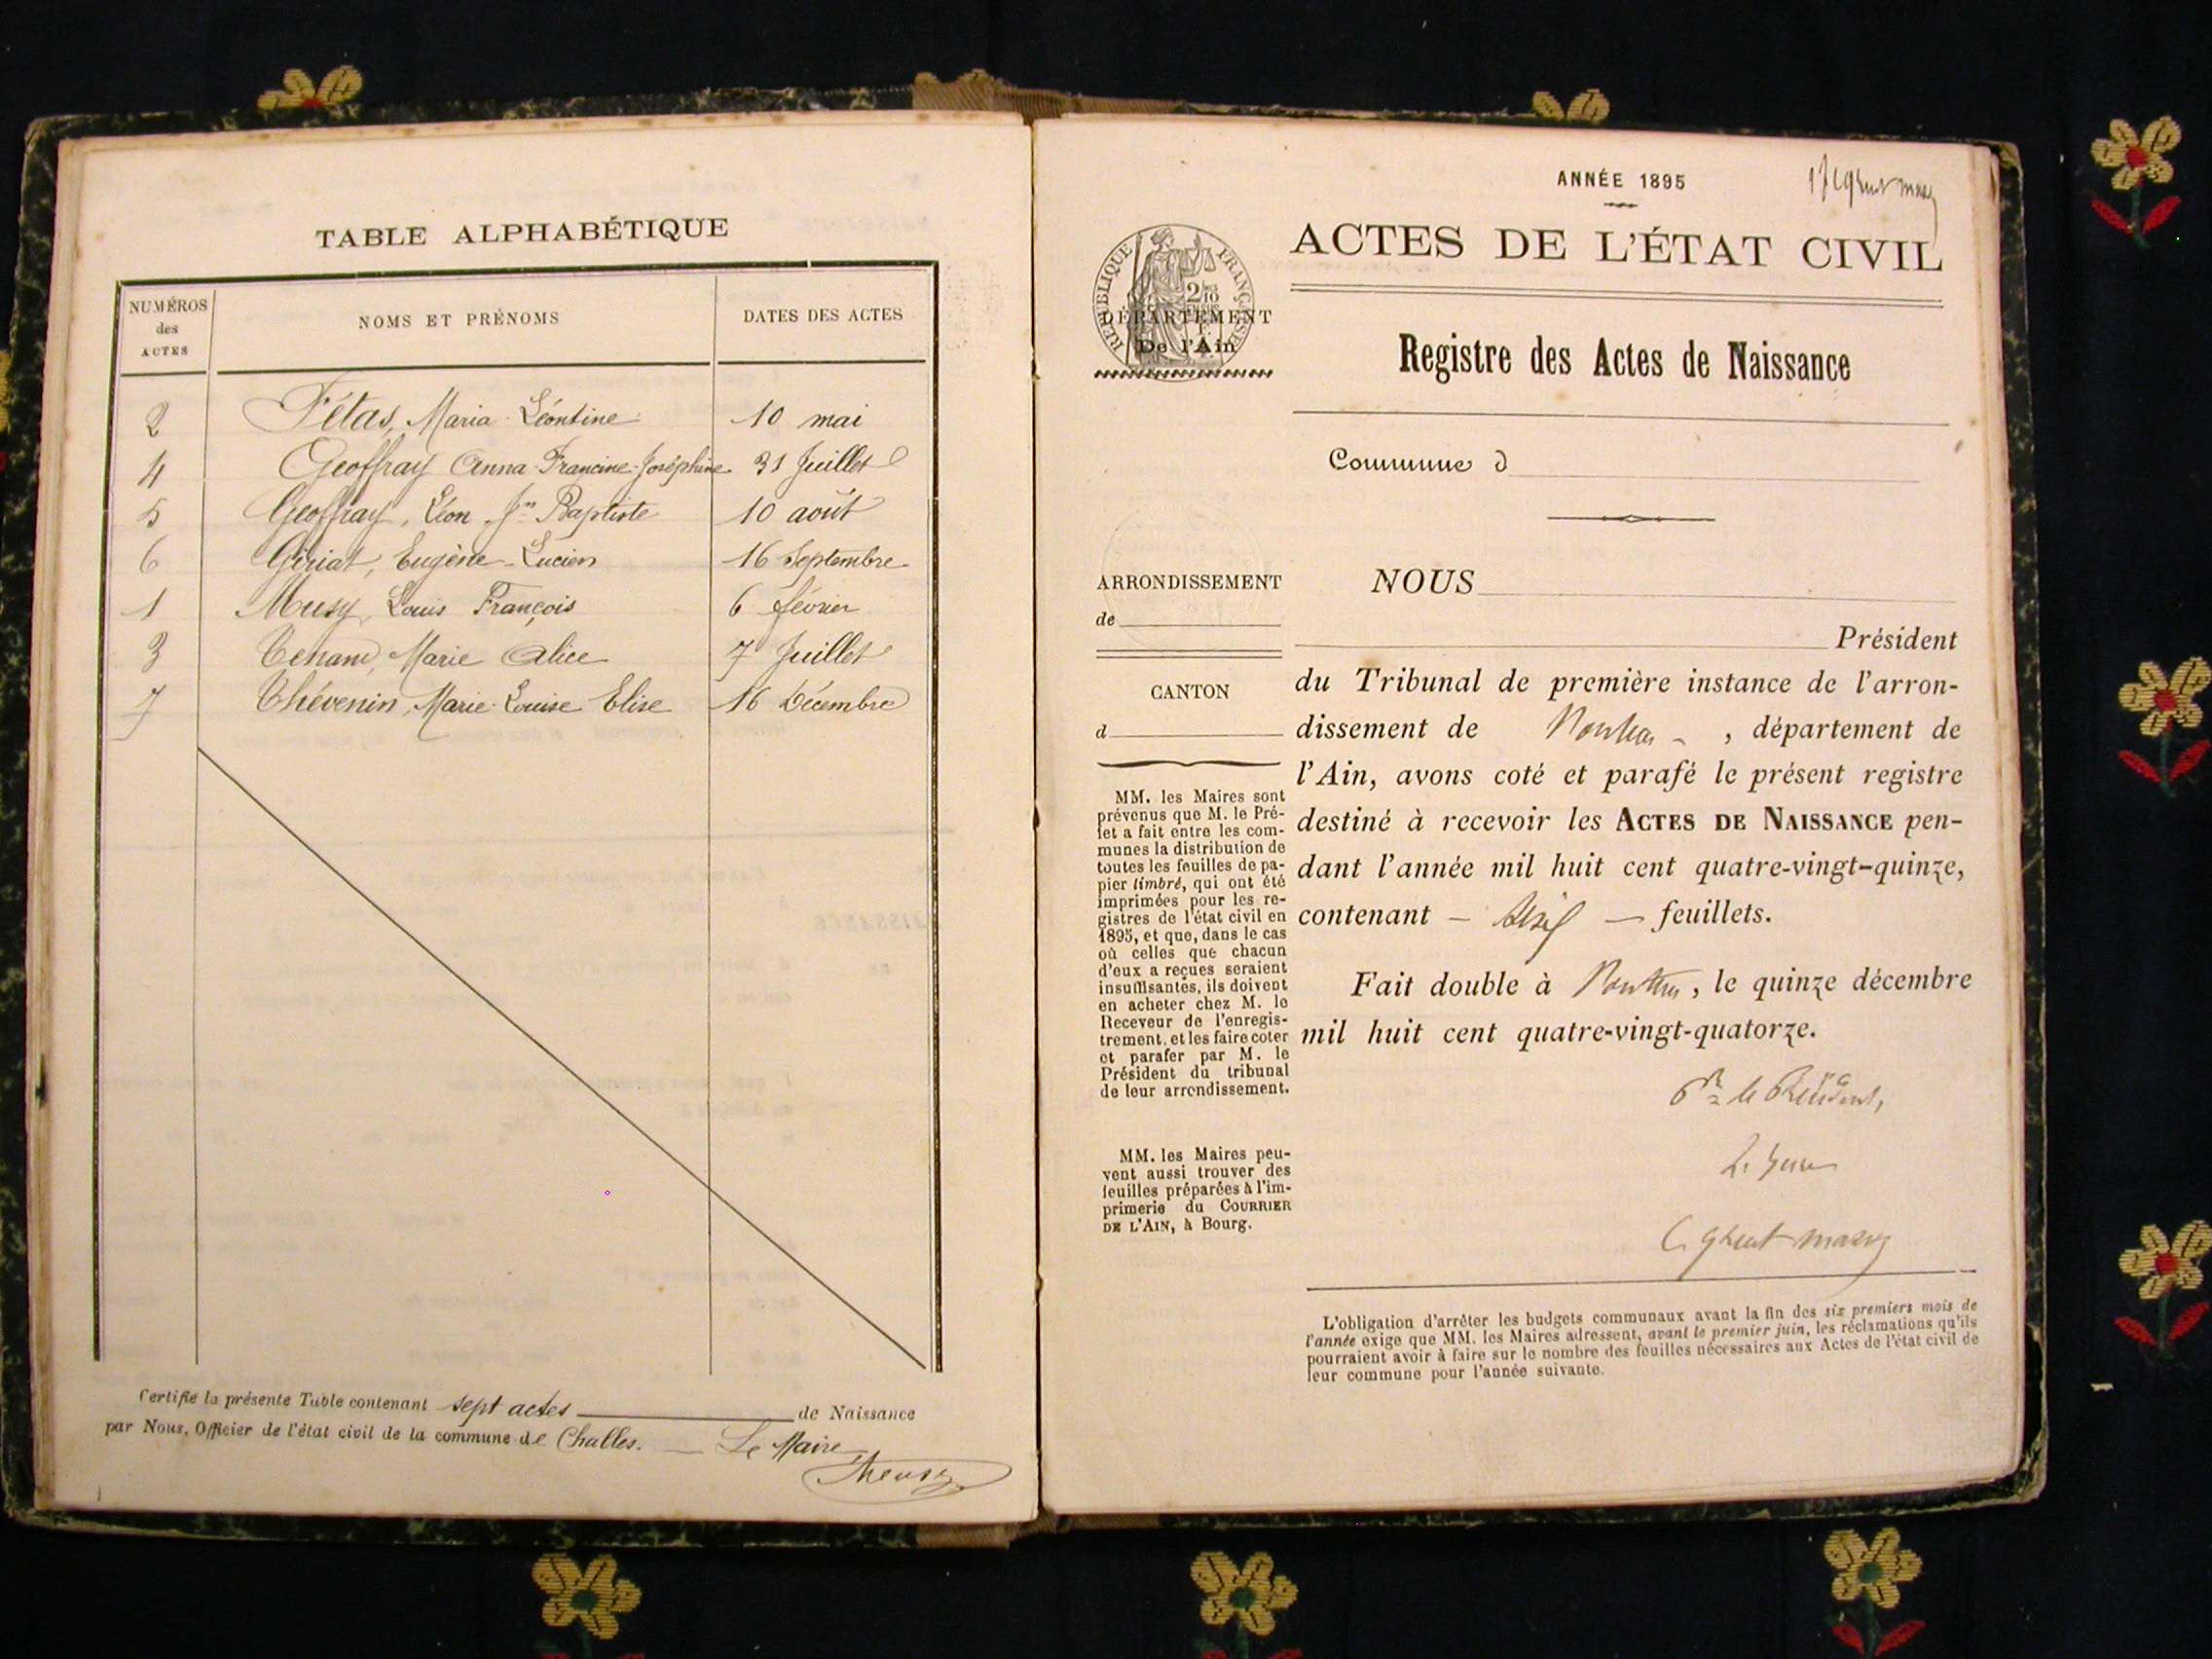 TABLE ALPHABÉTIQUE
NUMÉROS
des
ACTES
NOMS ET PRÉNOMS
DATES DES ACTES
2 Fétas, Maria Léontine 10 mai
4 Geoffray Anna Francine Joséphine 31 Juillet
5 Geoffray, Léon Jn Baptiste 10 août
6 Giriat, Eugène Lucien 16 Septembre
1 Musy, Louis François 6 février
3 Tenand, Marie Alice 7 Juillet
7 Thévenin, Marie Louise Elise 16 Décembre
Certifié la présente Table contenant sept actes de Naissance
par Nous, Officier de l'état civil de la commune de Challes. — Le Maire,
ANNÉE 1895
ACTES DE L'ÉTAT CIVIL
RÉPUBLIQUE FRANÇAISE
DÉPARTEMENT
De l'Ain
Registre des Actes de Naissance
Commune d
ARRONDISSEMENT
de
CANTON
d
MM. les Maires sont
prévenus que M. le Pré-
fet a fait entre les com-
munes la distribution de
toutes les feuilles de pa-
pier timbré, qui ont été
imprimées pour les re-
gistres de l'état civil en
1895, et que, dans le cas
où celles que chacun
d'eux a reçues seraient
insuffisantes, ils doivent
en acheter chez M. le
Receveur de l'enregis-
trement, et les faire coter
et parafer par M. le
Président du tribunal
de leur arrondissement.
MM. les Maires peu-
vent aussi trouver des
feuilles préparées à l'im-
primerie du COURRIER
DE L'AIN, à Bourg.
NOUS
Président
du Tribunal de première instance de l'arron-
dissement de , département de
l'Ain, avons coté et parafé le présent registre
destiné à recevoir les ACTES DE NAISSANCE pen-
dant l'année mil huit cent quatre-vingt-quinze,
contenant — — feuillets.
Fait double à , le quinze décembre
mil huit cent quatre-vingt-quatorze.
Pr le Président,
L'obligation d'arrêter les budgets communaux avant la fin des six premiers mois de
l'année exige que MM. les Maires adressent, avant le premier juin, les réclamations qu'ils
pourraient avoir à faire sur le nombre des feuilles nécessaires aux Actes de l'état civil de
leur commune pour l'année suivante.